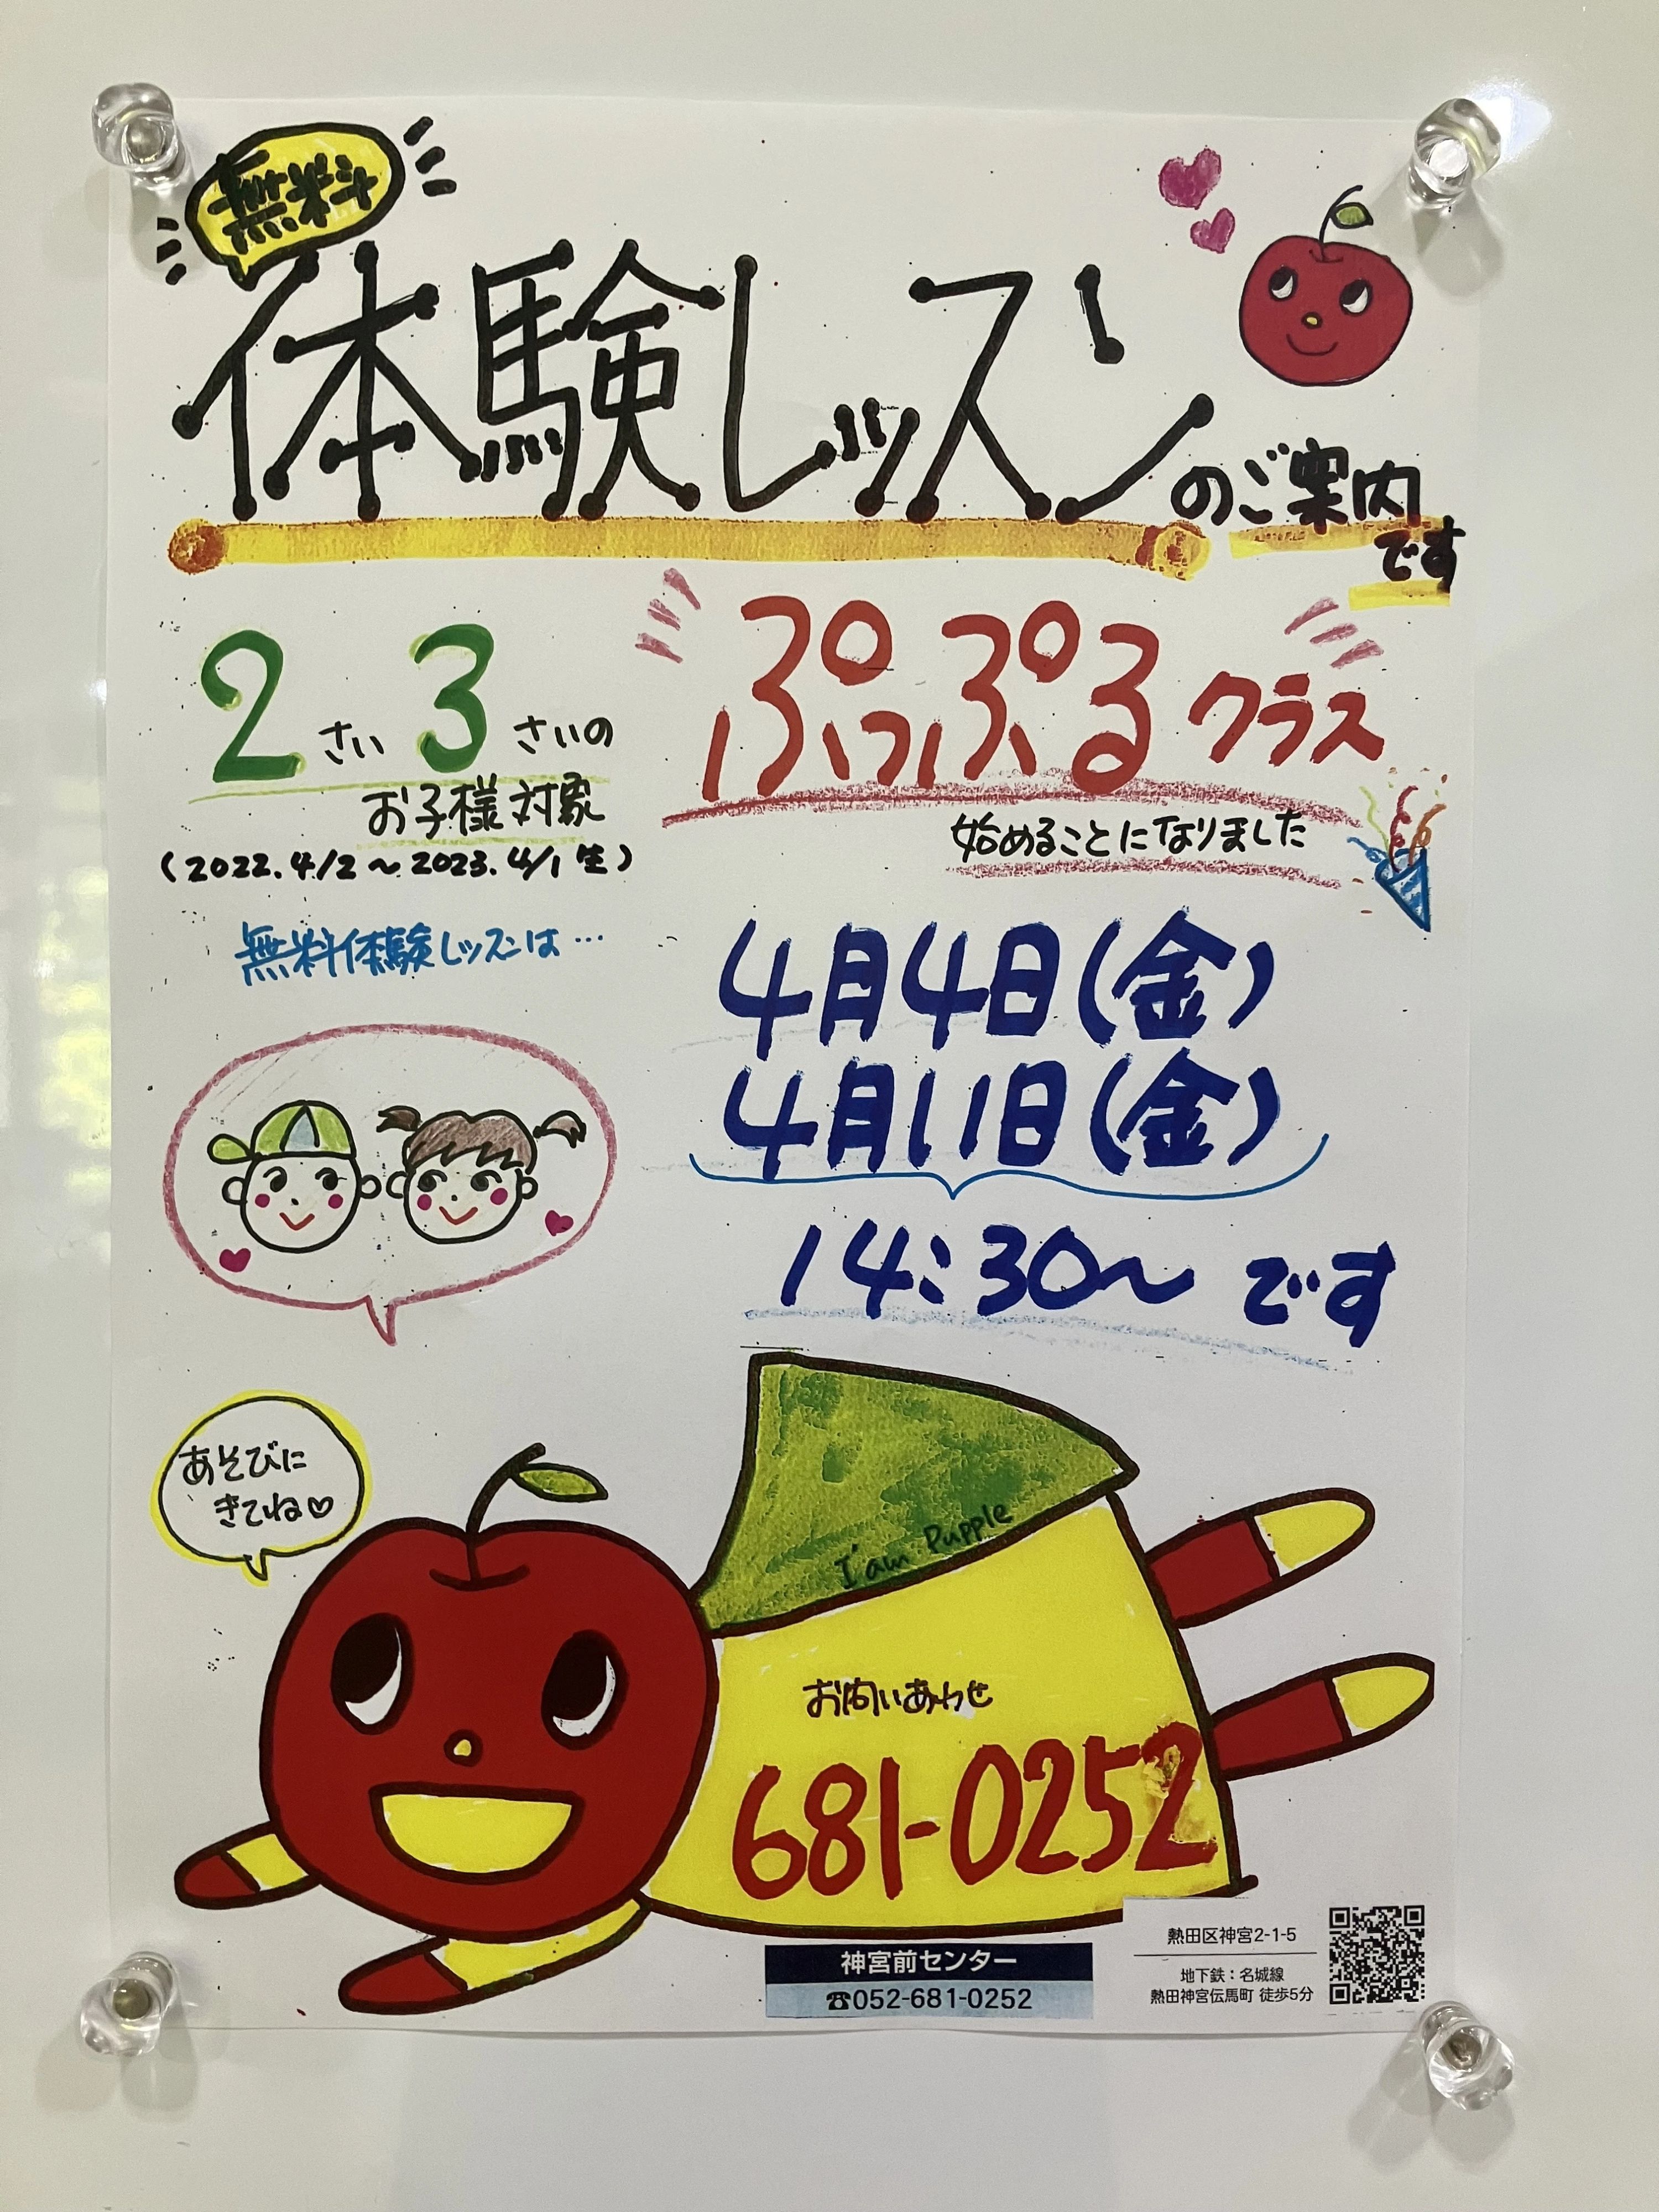 無料
体験レッスンのご案内
です
2さい3さいの
お子様対象
(2022.4/2～2023.4/1生)
ぷっぷるクラス
始めることになりました
無料体験レッスンは…
4月4日(金)
4月11日(金)
14:30～です
あそびに
きてね♡
I'am Pupple
お問いあわせ
681-0252
神宮前センター
☎052-681-0252
熱田区神宮2-1-5
地下鉄：名城線
熱田神宮伝馬町 徒歩5分